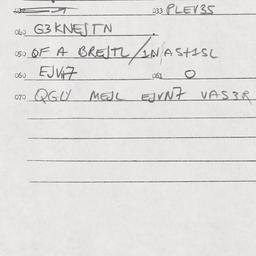 033 PLEV35
040 G3KNESTN
050 OF A BRESTL/IN/AS+ISL
060 EJV7 061 O
070 QGU MESL EJVN7 VAS3R